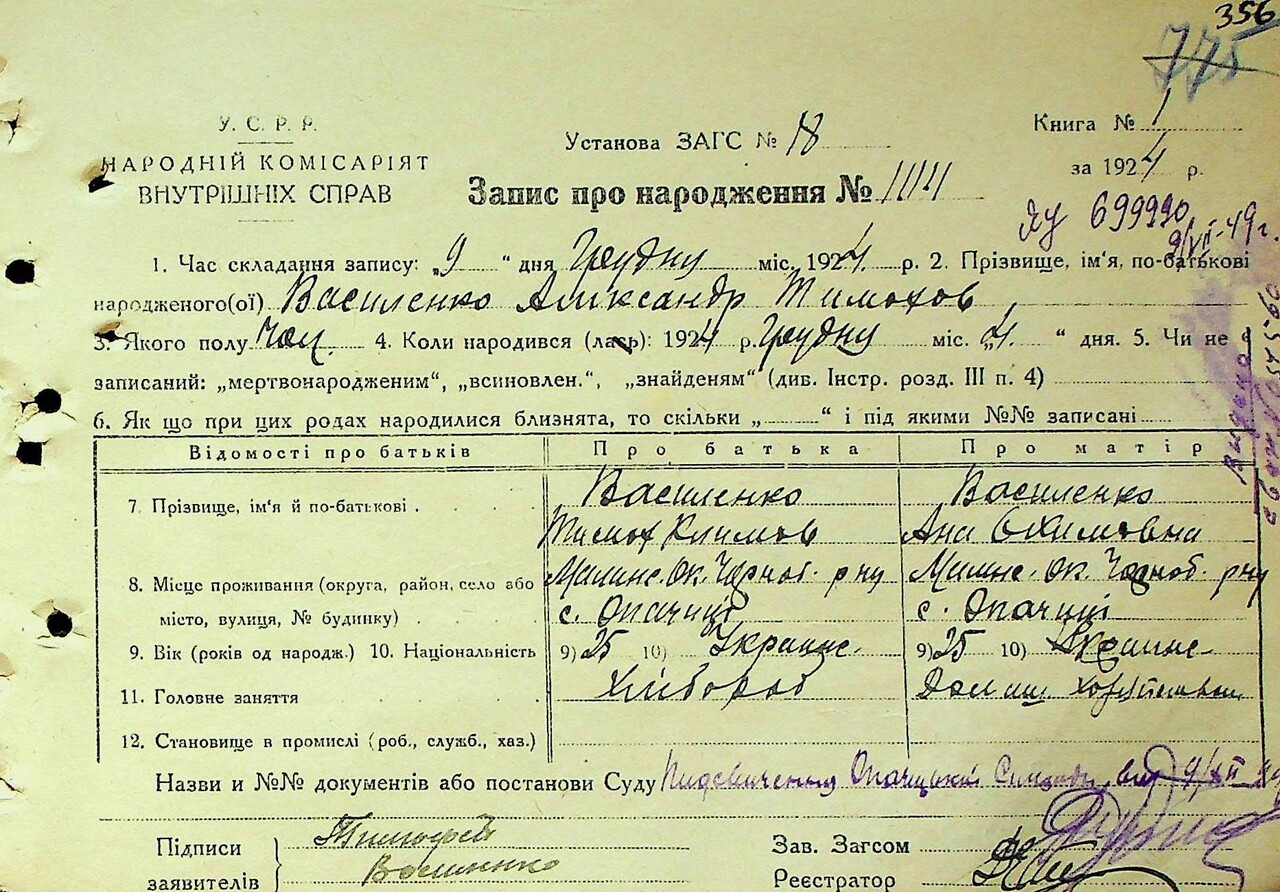 356
775
У. С. Р. Р.
НАРОДНІЙ КОМІСАРІЯТ
ВНУТРІШНІХ СПРАВ
Установа ЗАГС № 18
Книга № 1
за 1924 р.
Запис про народження №
ЯУ 699990
9/VII-49 г.
1. Час складання запису: „9 “ дня Грудну міс. 1924 р. 2. Прізвище, ім'я, по-батькові
народженого(ої) Василенко Александр Тимохов
3. Якого полу чол. 4. Коли народився (лась): 1924 р. Грудну міс. „4. “ дня. 5. Чи не є
записаний: „мертвонародженим“, „всиновлен.“, „знайденям“ (див. Інстр. розд. III п. 4)
6. Як що при цих родах народилися близнята, то скільки „ “ і під якими №№ записані
Відомості про батьків Про батька Про матір
7. Прізвище, ім'я й по-батькові Василенко Василенко
Тимох Климов Ана Юхимовна
8. Місце проживання (округа, район, село або Малинс. Ок. Чорноб. р-ну Малинс. Ок. Чорноб. р-ну
місто, вулиця, № будинку) с. Опачиці с. Опачиці
9. Вік (років од народж.) 10. Національність 9) 25 10) Украинс. 9) 25 10) Украинс.
11. Головне заняття Хлібороб Домаш
12. Становище в промислі (роб., служб., хаз.)
Назви и №№ документів або постанови Суду Опачицької 9/XII
Підписи Тимофей
заявителів Василенко
Зав. Загсом
Реєстратор
Видано